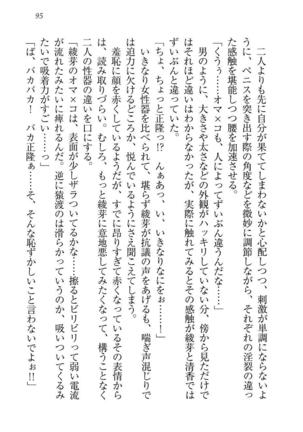 95
二人よりも先に自分が果ててしまわないかと心配しつつ、刺激が単調にならない
ように、ペニスを突き出す際の角度などを微妙に調節しながら、それぞれの淫裂の違っ
た感触を堪能しつつ腰を加速させる。
「くうぅ……オマ×コって、人によってずいぶん違うんだな……」
男のように、大きさや太さなどの外観がハッキリしていない分、傍から見れば
それほど違いはわからなかったが、実際に触れてみるとその感触が綾芽と清香では
ずいぶんと違っていた。
「ちょ、ちょっと正隆っ!?　んぁぁっ、い、いきなりなにを……」
いきなり女性器を比べられて、堪らず綾芽が抗議の声をあげるも、喘ぎ声混じりで
は迫力に欠けるどころか、悦んでいるようにさえ聞こえてしまう。
羞恥に顔を赤くしているようだが、すでに昂りすぎて赤くなっているその表情から
は、読み取りづらい。むしろ、もっと綾芽に意地悪してみたくなって、構うことなく
二人の性器の違いを口にする。
「綾芽のオマ×コは、表面が少しザラついてるかな……擦るとビリビリって弱い電流
が流れたみたいに痺れるんだ。逆に猿渡のは滑らかっていうのか、吸いついてくるみ
たいで吸着力がすごい……っ」
「ば、バカバカ！　バカ正隆ぁ……そ、そんな恥ずかしいこと言わな
いでよぉ!!」